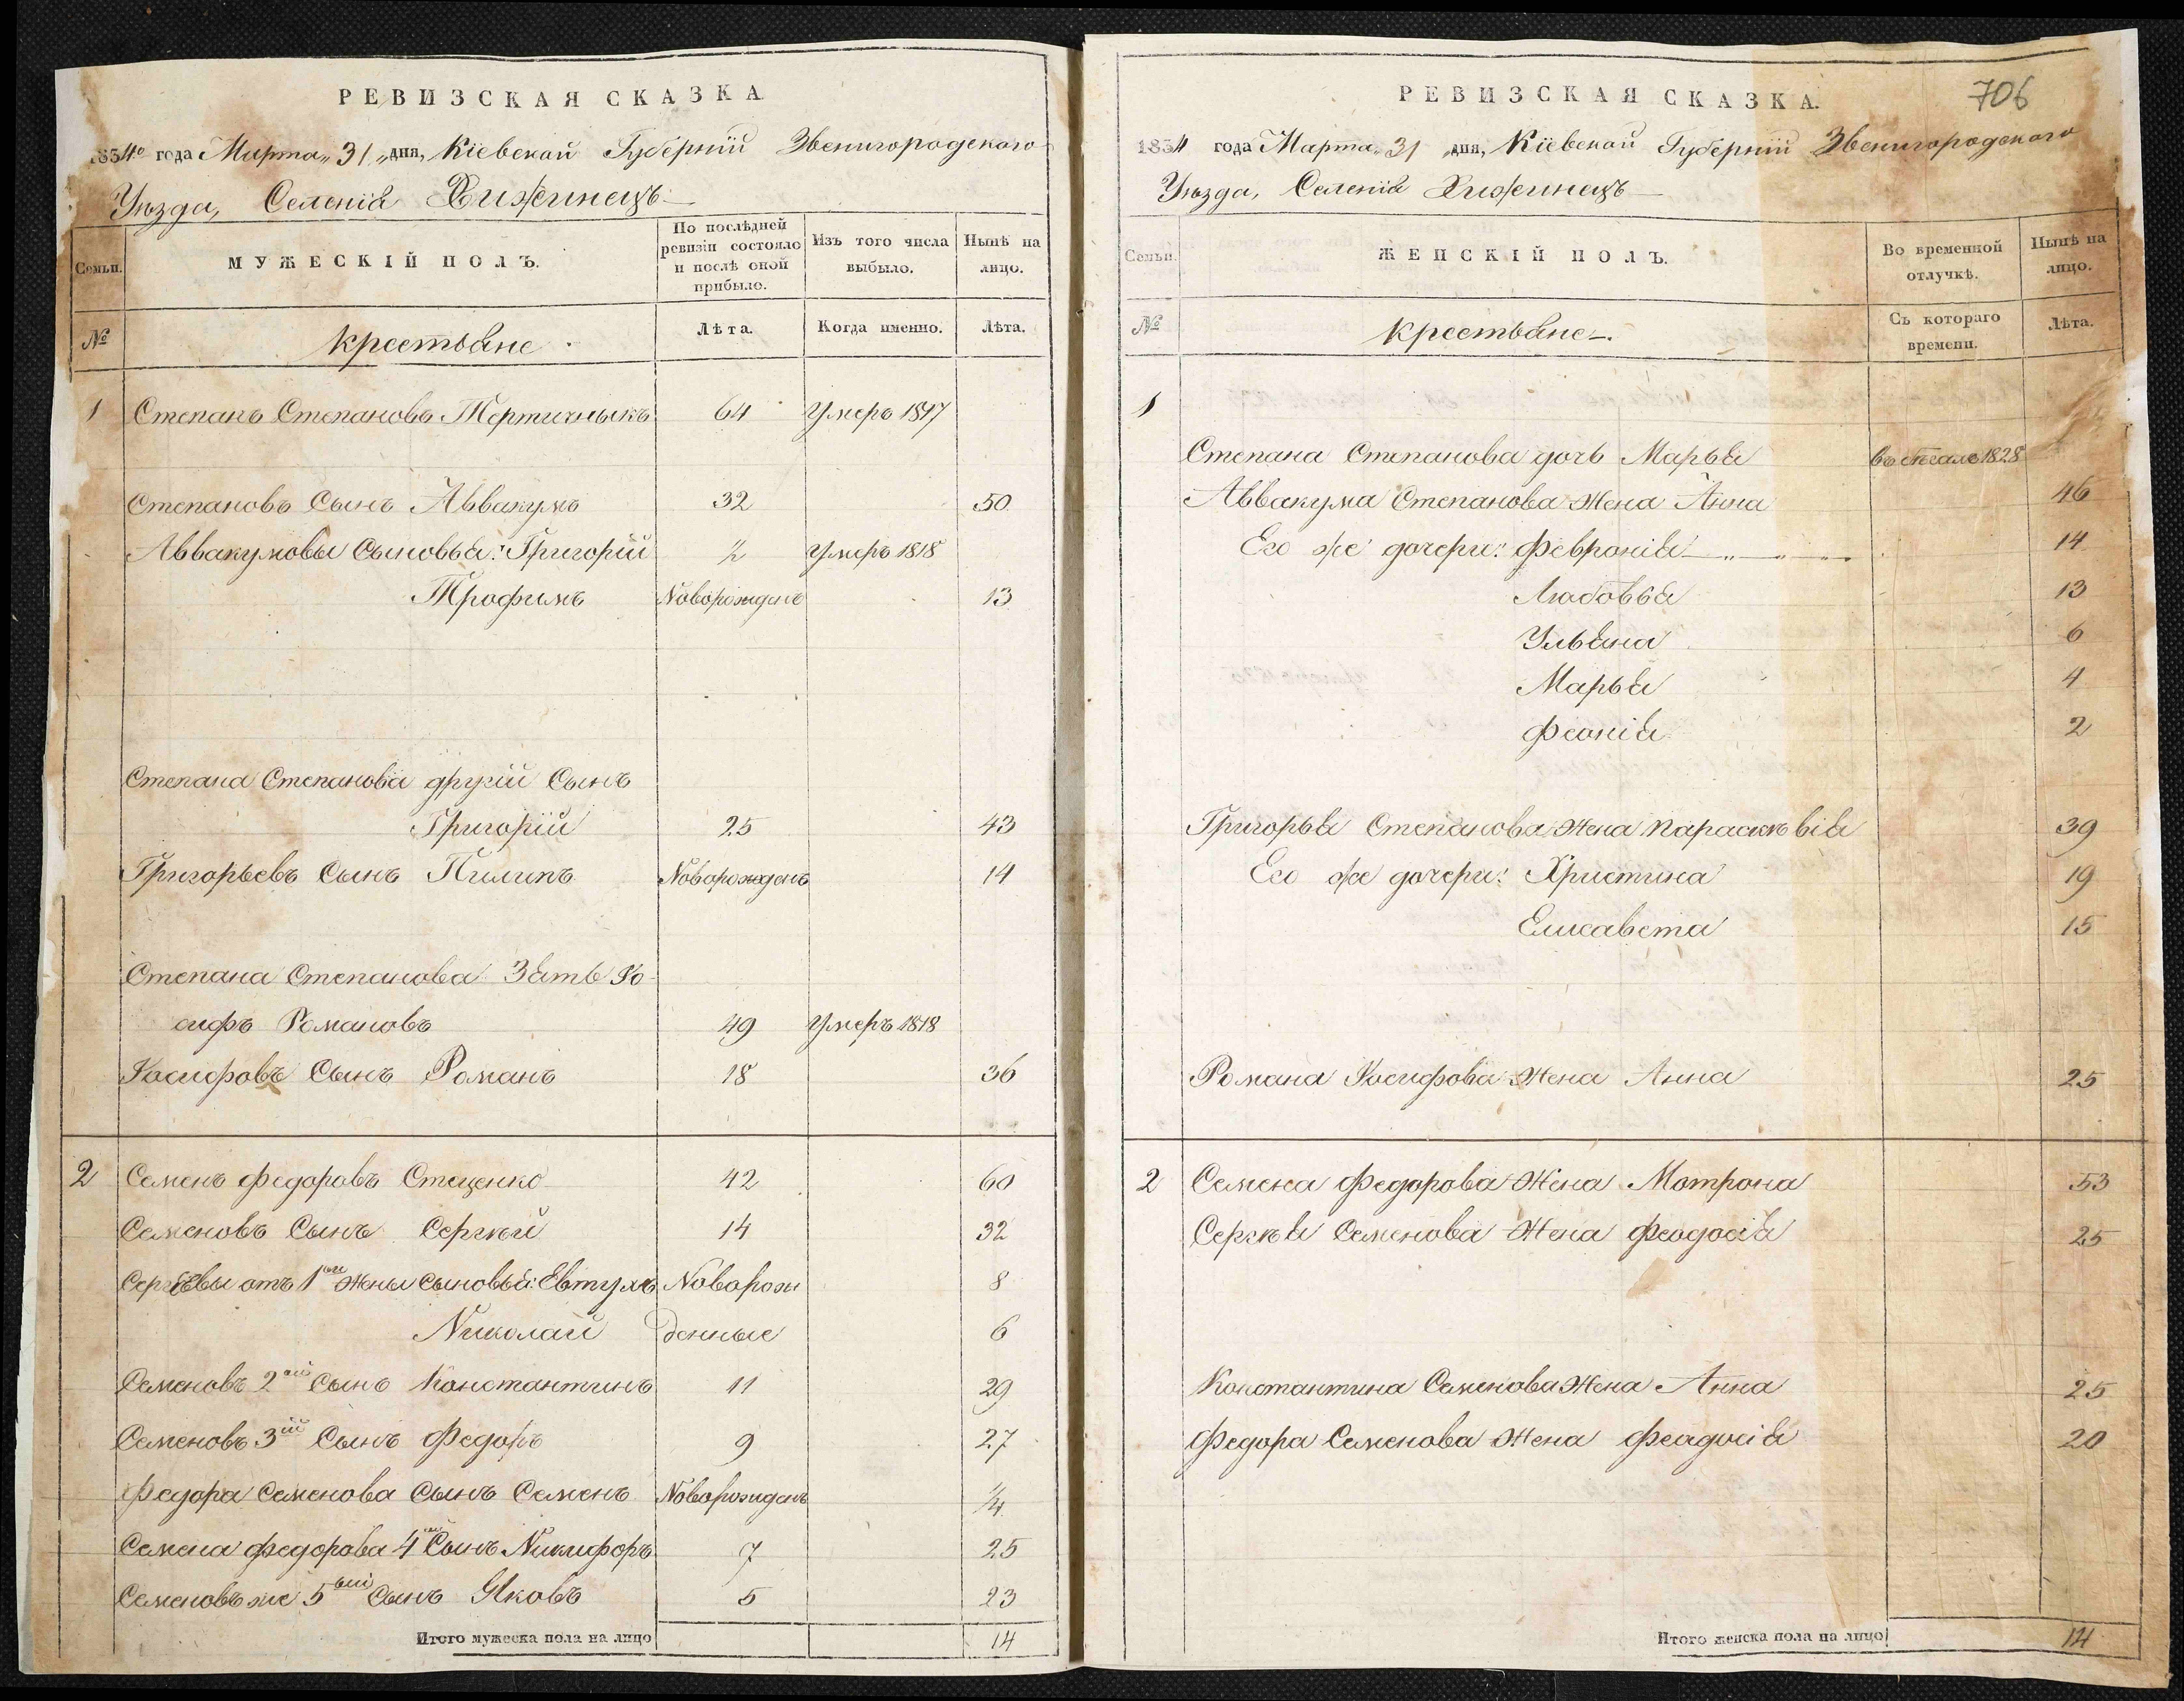 РЕВИЗСКАЯ СКАЗКА
1834го года Марта „31„ дня, Кіевской Губерніи Звенигородскаго
Уѣзда, Селенія Хижинецъ
Семьи.
МУЖЕСКІЙ ПОЛЪ.
По послѣдней ревизіи состояло и послѣ оной прибыло.
Изъ того числа выбыло.
Нынѣ на лицо.
№
крестьяне
Лѣта.
Когда именно.
Лѣта.
1 Степанъ Степановъ Тертичныкъ 64 Умеръ 1817
Степановъ Сынъ Аввакумъ 32 50
Аввакумовы Сыновья: Григорій 2 Умеръ 1818
Трофимъ Новорожденъ 13
Степана Степанова другій Сынъ
Григорій 25 43
Григорьевъ Сынъ Пилипъ Новорожденъ 14
Степана Степанова Зять Іо-
сифъ Романовъ 49 Умеръ 1818
Іосифовъ Сынъ Романъ 18 36
2 Семенъ Федоровъ Стеценко 42 60
Семеновъ Сынъ Сергѣй 14 32
Сергѣевы отъ 1ой Жены Сыновья: Евтумъ Новорож 8
Николай денные 6
Семеновъ 2ой Сынъ Константинъ 11 29
Семеновъ 3ій Сынъ Федоръ 9 27
Федора Семенова Сынъ Семенъ Новорожденъ 1/4
Семена Федорова 4ый Сынъ Никифоръ 7 25
Семеновъ же 5ый Сынъ Яковъ 5 23
Итого мужеска пола на лицо 14
РЕВИЗСКАЯ СКАЗКА.
706
1834 года Марта „31„ дня, Кіевской Губерніи Звенигородскаго
Уѣзда, Селенія Хижинецъ
Семьи.
ЖЕНСКІЙ ПОЛЪ.
Во временной отлучкѣ.
Нынѣ на лицо.
№
крестьяне.
Съ котораго времени.
Лѣта.
1
Степана Степанова дочь Марья 1828
Аввакума Степанова Жена Анна 46
Его же дочери: Февронія 14
Любовья 13
Ульяна 6
Марья 4
Феонія 2
Григорья Степанова Жена Параскѣвія 39
Его же дочери: Христина 19
Елисавета 15
Романа Іосифова Жена Анна 25
2 Семена Федорова Жена Мотрона 53
Сергѣя Семенова Жена Феодосія 25
Константина Семенова Жена Анна 25
Федора Семенова Жена Феодосія 20
Итого женска пола на лицо 14